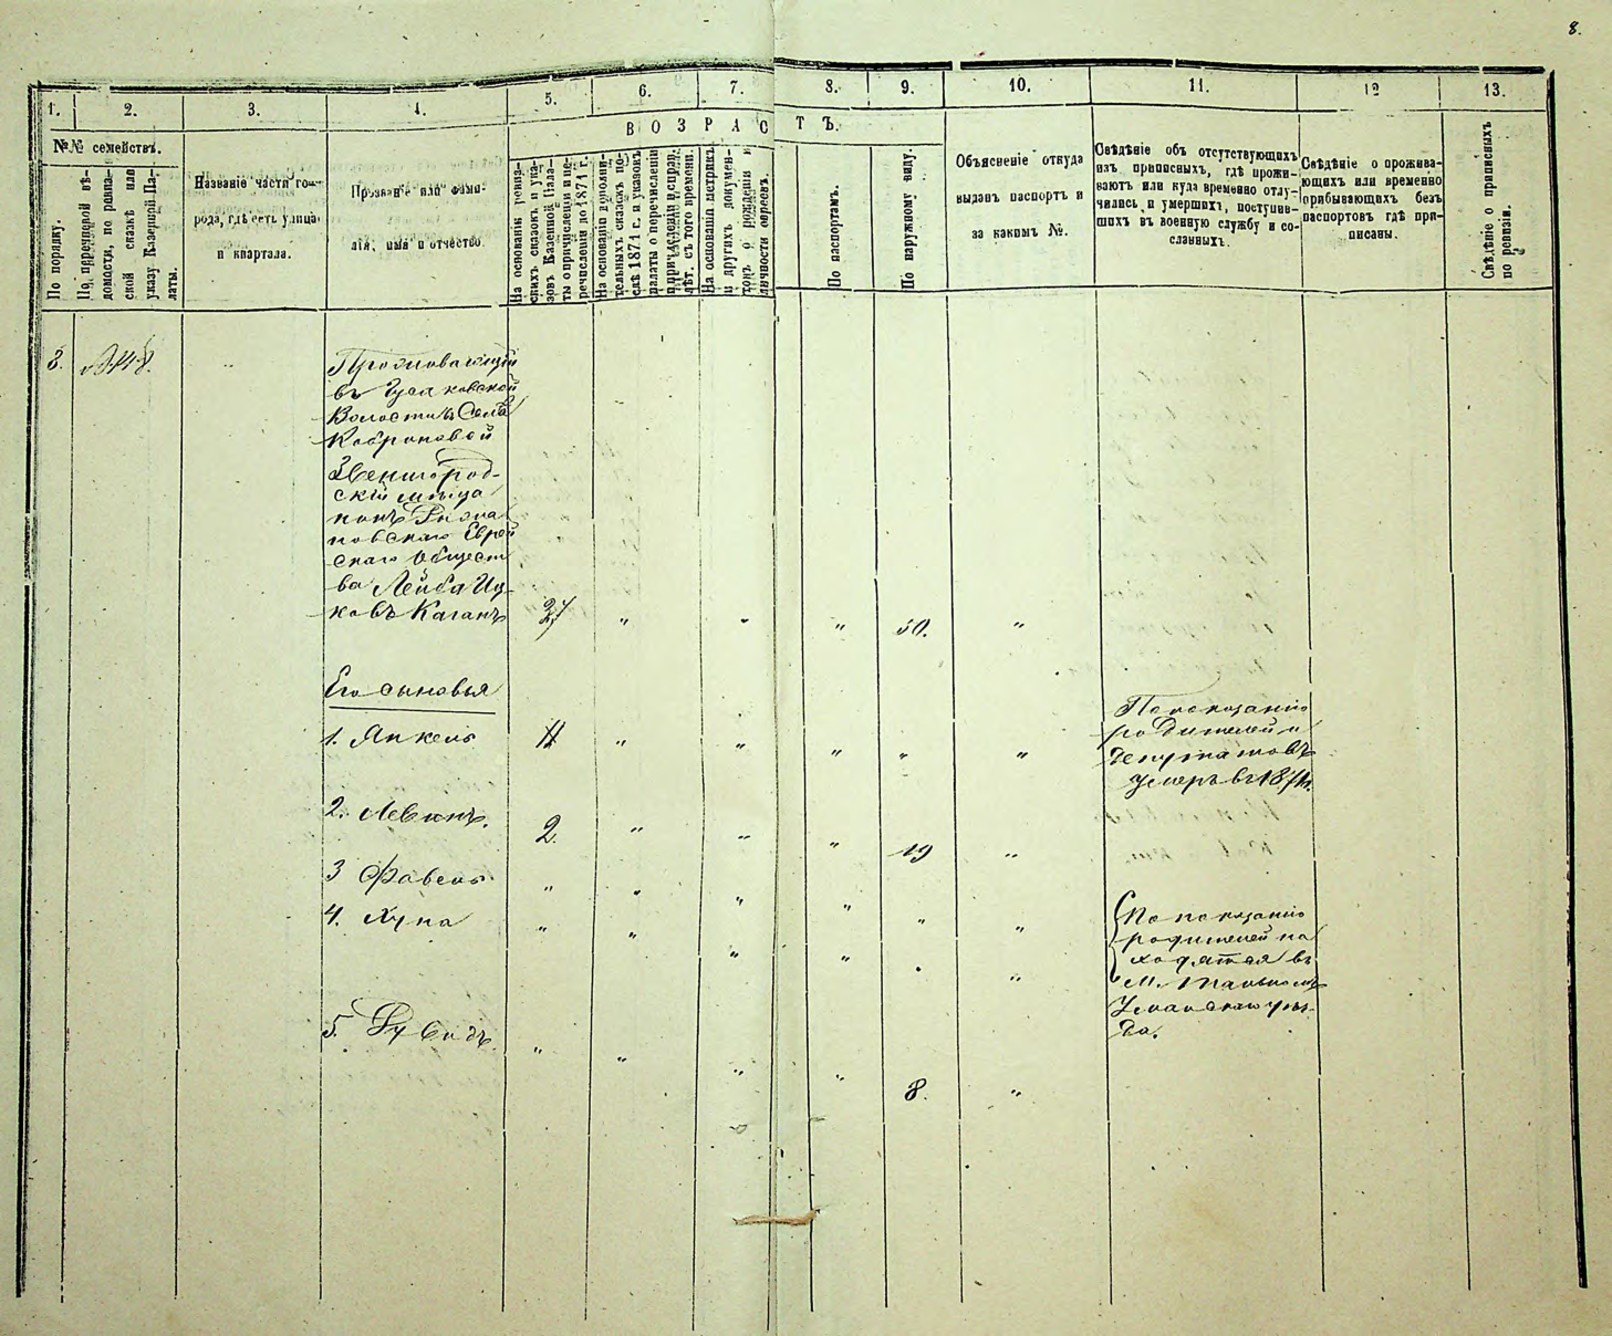 8.
1.
2.
3.
4.
5.
6.
7.
8.
9.
10.
11.
12
13.
№№ семействъ.
По порядку.
По перечневой вѣ-
домости, по ревиз-
ской сказкѣ или
указу Казенной Па-
латы.
Названіе части го-
рода, гдѣ есть улица
и квартала.
Прозваніе или фами-
лія, имя и отчество.
ВОЗРАСТЪ.
На основаніи ревиз-
скихъ сказокъ и ука-
зовъ Казенной Пала-
ты о причисленіи и пе-
речисленіи до 1871 г.
На основаніи дополни-
тельныхъ сказокъ по-
слѣ 1871 г. и указовъ
палаты о перечисленіи
и причисленіи и справ.
лѣт. съ того времени.
На основаніи метрикъ
и другихъ докумен-
товъ о рожденіи и
личности евреевъ.
По паспортамъ.
По наружному виду.
Объясненіе откуда
выданъ паспортъ и
за какимъ №.
Свѣдѣніе объ отсутствующихъ
изъ приписныхъ, гдѣ прожи-
ваютъ или куда временно отлу-
чились и умершихъ, поступив-
шихъ въ военную службу и со-
сланныхъ.
Свѣдѣніе о прожива-
ющихъ или временно
прибывающихъ безъ
паспортовъ гдѣ при-
писаны.
Свѣдѣніе о приписныхъ
по ревизіи.
8.
Проживающій
въ Гусаковской
Волости въ Селѣ
Звенигород-
скій мѣща
нинъ
Еврей
скаго Общест
ва Лейба Иц-
ковъ Каганъ
27 " " " 50. "
Его сыновья
1. Янкель
11 " " " " "
По показанію
родителей и
депутатовъ
умеръ въ 187
2. Левикъ.
2. " " " 19 "
3 Файвель
" " " " " "
4. Хуна
" " " " " "
По показанію
родителей на
ходятся въ
м. Тальномъ
Уманскаго уѣз-
да.
5. Рувинъ
" " " " 8. "